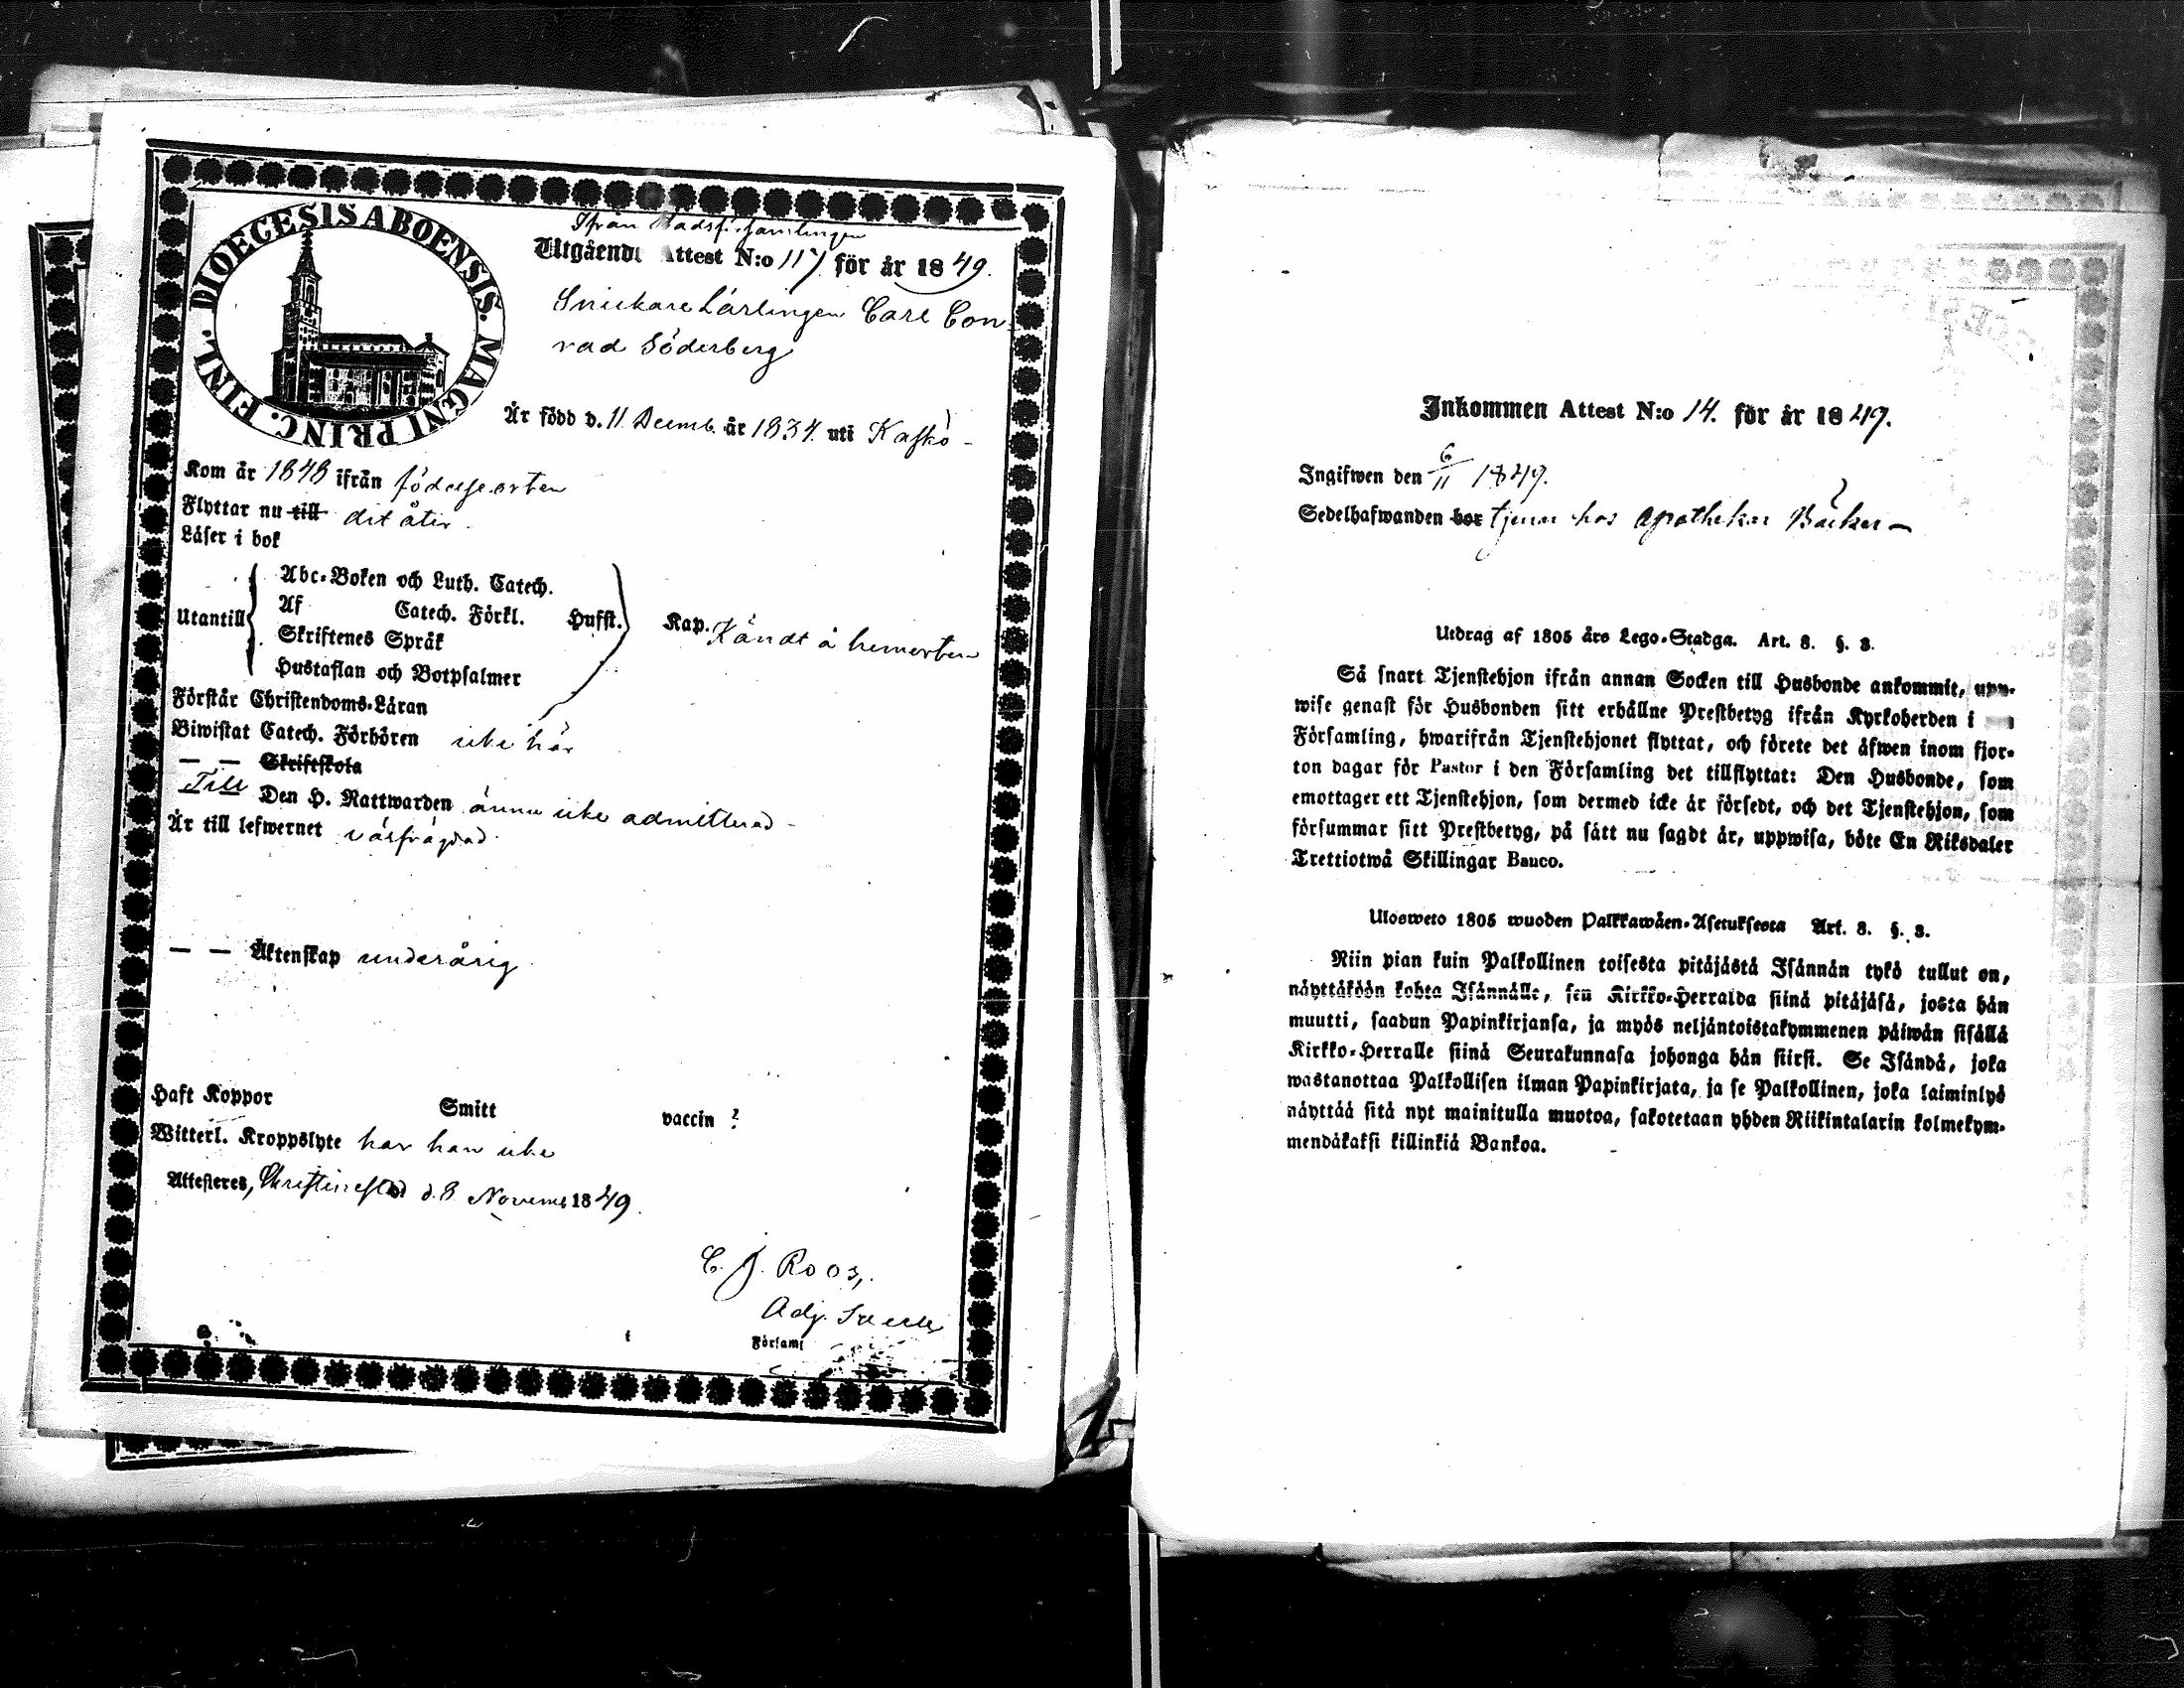 DIOECESIS ABOENSIS. MAGNI PRINC. FINL.
Ifrån Stadsförsamlingen
Utgåend Attest N:o 117 för år 1849.
Snickare Lärlingen Carl Con-
rad Söderberg
Är född d. 11 Decemb. år 1834. uti Kaskö -
Kom år 1848 ifrån födelseorten
Flyttar nu till dit åter.
Läser i bok
Utantill
Abc-Boken och Luth. Catech.
Af Catech. Förkl. Hufst. Kap. Kändt å hemorten
Skriftenes Språk
Hustaflan och Botpsalmer
Förstår Christendoms-Läran
Biwistat Catech. Förhören icke här
— — Skriftskola
Till Den H. Nattwarden ännu icke admitterad -
Är till lefwernet väsfrägdad.
— — Äktenskap underårig
Haft Koppor Smitt vaccin ?
Witterl. Kroppslyte har han icke
Attesteres, Christinestad d. 8 Novemb 1849.
C. J. Roos,
Adj.
Församl
Inkommen Attest N:o 14. för år 1849.
Ingifwen den 6/11 1849.
Sedelhafwanden bor tjenar hos apothekar Bäcker -
Utdrag af 1805 års Lego-Stadga. Art. 8. §. 3.
Så snart Tjenstehjon ifrån annan Socken till Husbonde ankommit, upp-
wise genast för Husbonden sitt erhållne Prestbetyg ifrån Kyrkoherden i
Församling, hwarifrån Tjenstehjonet flyttat, och förete det äfwen inom fjor-
ton dagar för Pastor i den Församling det tillflyttat: Den Husbonde, som
emottager ett Tjenstehjon, som dermed icke är försedt, och det Tjenstehjon, som
försummar sitt Prestbetyg, på sätt nu sagdt är, uppwisa, böte En Riksdaler
Trettiotwå Skillingar Banco.
Ulosweto 1805 wuoden Palkkawäen-Asetuksesta Art. 8. §. 3.
Niin pian kuin Palkollinen toisesta pitäjästä Isännän tykö tullut on,
näyttäköön kohta Isännälle, sen Kirkko-Herralda siinä pitäjäsä, josta hän
muutti, saadun Papinkirjansa, ja myös neljäntoistakymmenen päiwän sisällä
Kirkko-Herralle siinä Seurakunnasa johonga hän siirsi. Se Isändä, joka
wastanottaa Palkollisen ilman Papinkirjata, ja se Palkollinen, joka laiminlyö
näyttää sitä nyt mainitulla muotoa, sakotetaan yhden Riikintalarin kolmekym-
mendäkaksi killinkiä Bankoa.